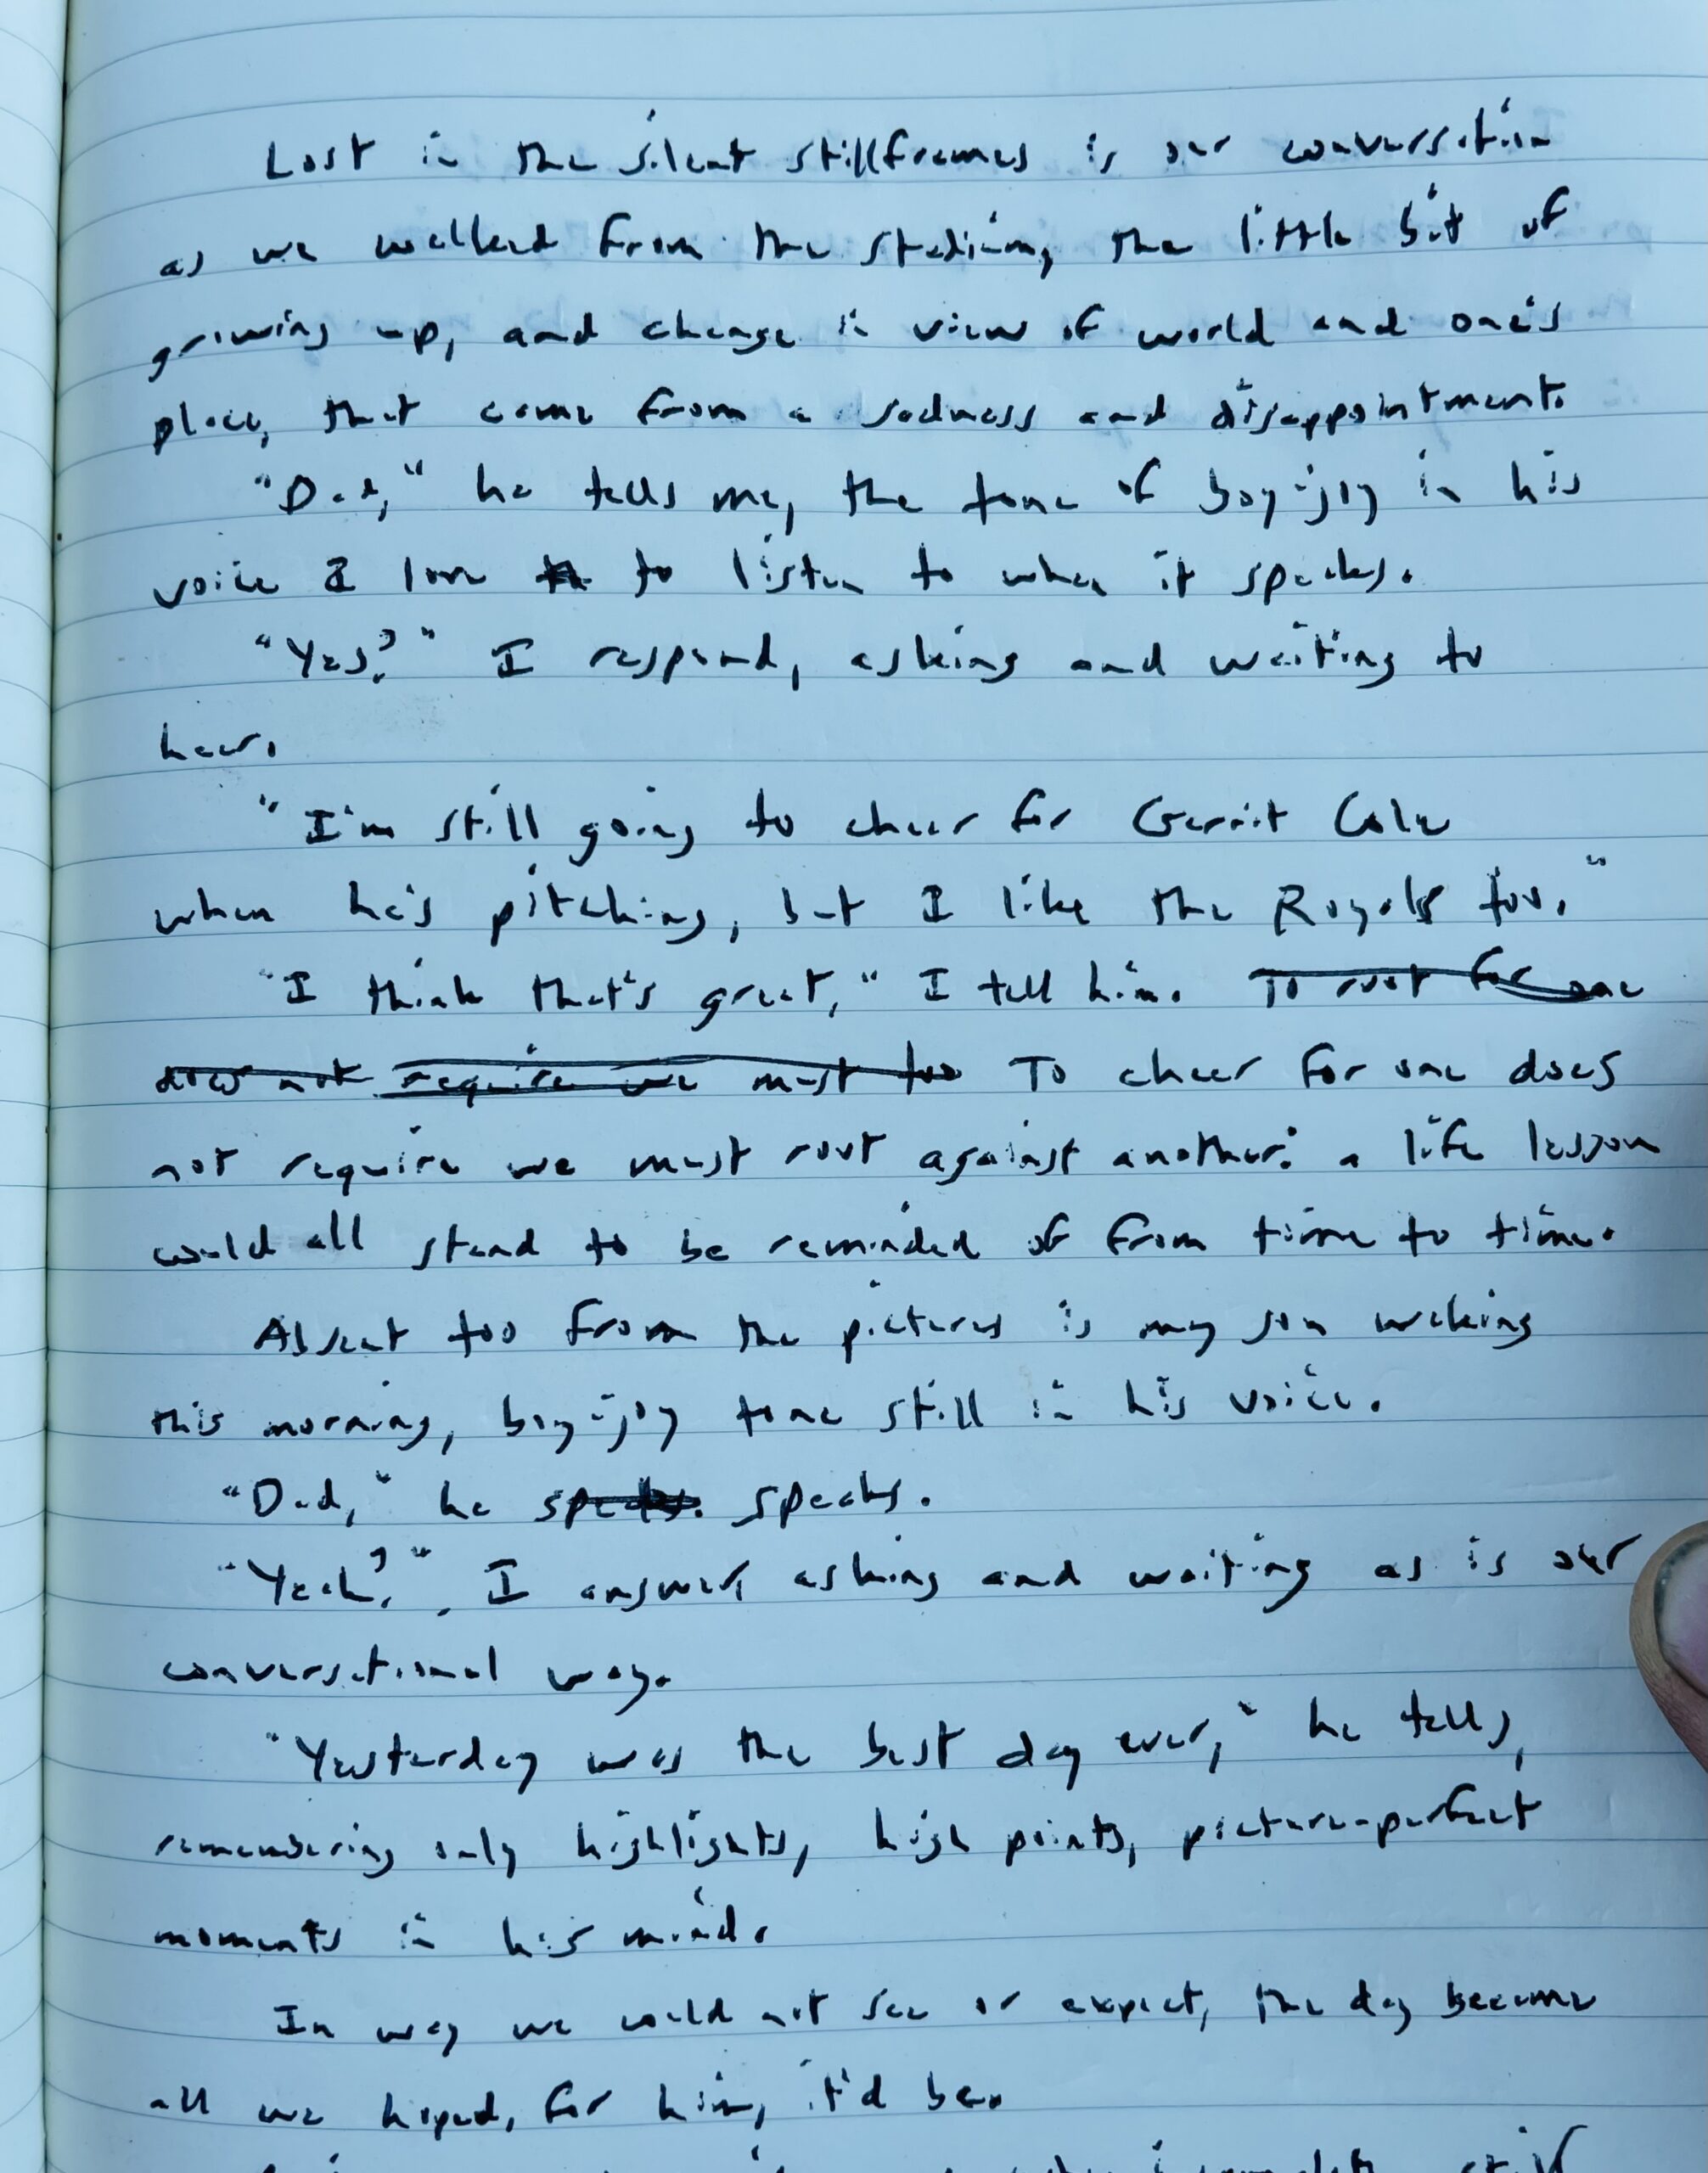 Lost in the silent stillframes is our conversation
as we walked from the stadium, the little bit of
growing up, and change in view of world and one's
place, that come from a sadness and disappointment.
"Dad," he tells me, the tone of boy-joy in his
voice I love to listen to when it speaks.
"Yes?" I respond, asking and waiting to
hear.
"I'm still going to cheer for Gerrit Cole
when he's pitching, but I like the Royals too."
"I think that's great," I tell him. To root for one
does not require we must too To cheer for one does
not require we must root against another: a life lesson
could all stand to be reminded of from time to time.
Absent too from the pictures is my son waking
this morning, boy-joy tone still in his voice.
"Dad," he speaks. speaks.
"Yeah?", I answer, asking and waiting as is our
conversational way.
"Yesterday was the best day ever," he tells,
remembering only highlights, high points, picture-perfect
moments in his mind.
In way we could not see or expect, the day became
all we hoped, for him, it'd be.
still